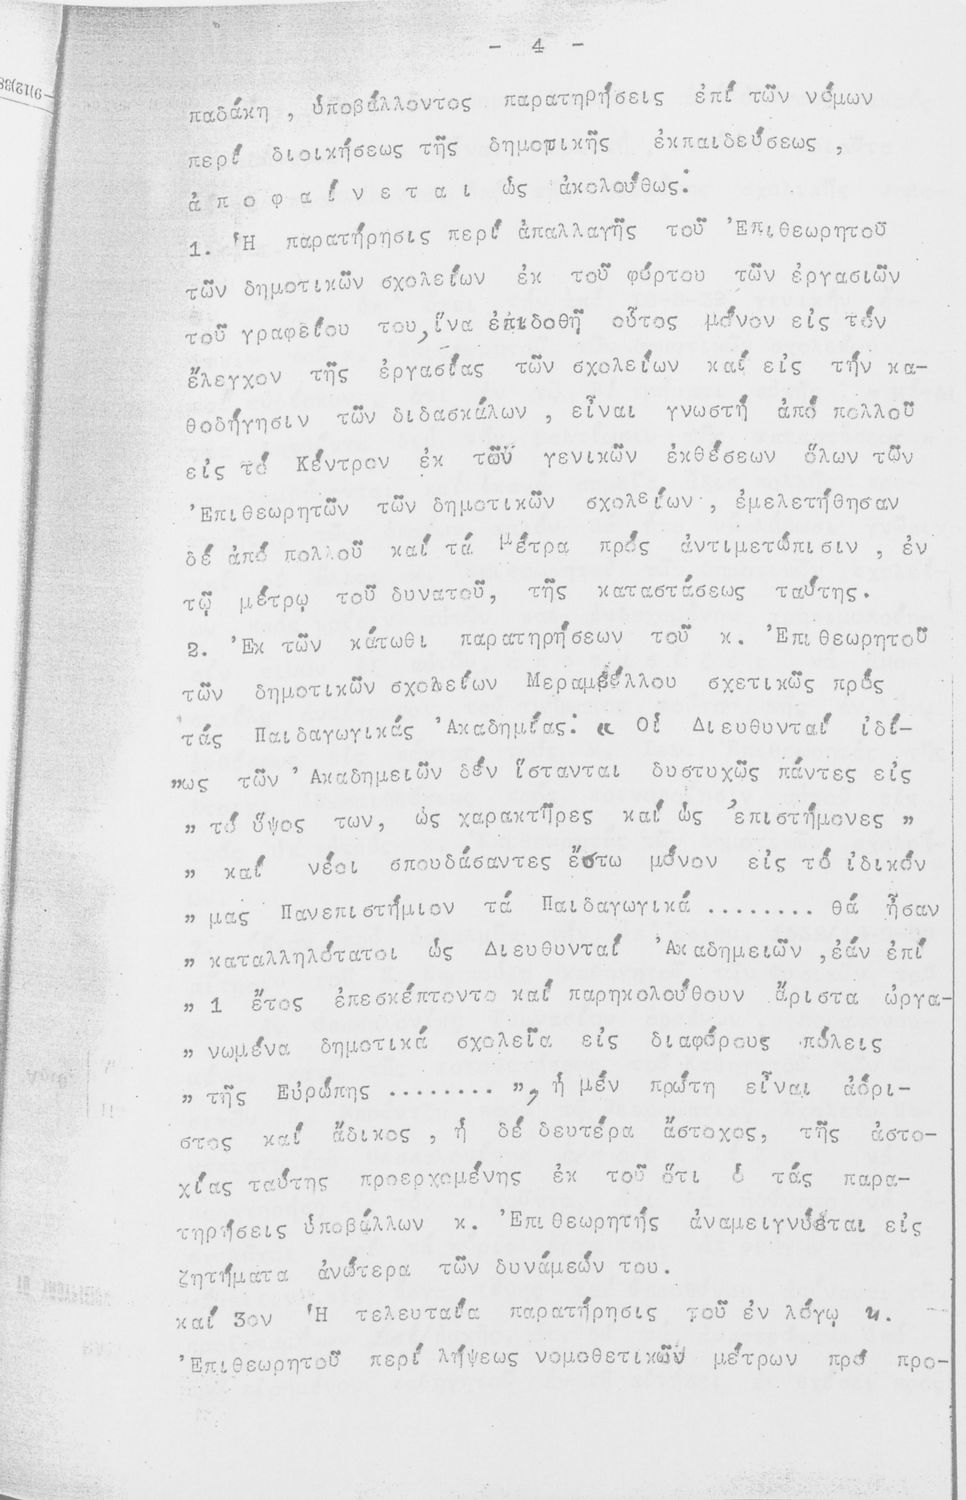 - 4 -
παδάκη , ὑποβάλλοντος παρατηρήσεις ἐπί τῶν νόμων
περί διοικήσεως τῆς δημοτικῆς ἐκπαιδεύσεως ,
ἀ π ο φ α ί ν ε τ α ι ὡς ἀκολούθως:
1. Ἡ παρατήρησις περί ἀπαλλαγῆς τοῦ Ἐπιθεωρητοῦ
τῶν δημοτικῶν σχολείων ἐκ τοῦ φόρτου τῶν ἐργασιῶν
τοῦ γραφείου του, ἵνα ἐπιδοθῇ οὗτος μόνον εἰς τόν
ἔλεγχον τῆς ἐργασίας τῶν σχολείων καί εἰς τήν κα-
θοδήγησιν τῶν διδασκάλων , εἶναι γνωστή ἀπό πολλοῦ
εἰς τό Κέντρον ἐκ τῶν γενικῶν ἐκθέσεων ὅλων τῶν
Ἐπιθεωρητῶν τῶν δημοτικῶν σχολείων , ἐμελετήθησαν
δέ ἀπό πολλοῦ καί τά μέτρα πρός ἀντιμετώπισιν , ἐν
τῷ μέτρῳ τοῦ δυνατοῦ, τῆς καταστάσεως ταύτης.
2. Ἐκ τῶν κάτωθι παρατηρήσεων τοῦ κ. Ἐπιθεωρητοῦ
τῶν δημοτικῶν σχολείων Μεραμβέλλου σχετικῶς πρός
τάς Παιδαγωγικάς Ἀκαδημίας: « Οἱ Διευθυνταί ἰδί-
"ως τῶν Ἀκαδημειῶν δέν ἵστανται δυστυχῶς πάντες εἰς
" τό ὕψος των, ὡς χαρακτῆρες καί ὡς ἐπιστήμονες "
" καί νέοι σπουδάσαντες ἔστω μόνον εἰς τό ἰδικόν
" μας Πανεπιστήμιον τά Παιδαγωγικά ........ θά ἦσαν
" καταλληλότατοι ὡς Διευθυνταί Ἀκαδημειῶν ,ἐάν ἐπί
" 1 ἔτος ἐπεσκέπτοντο καί παρηκολούθουν ἄριστα ὠργα-
" νωμένα δημοτικά σχολεῖα εἰς διαφόρους πόλεις
" τῆς Εὐρώπης ........ ", ἡ μέν πρώτη εἶναι ἀόρι-
στος καί ἄδικος , ἡ δέ δευτέρα ἄστοχος, τῆς ἀστο-
χίας ταύτης προερχομένης ἐκ τοῦ ὅτι ὁ τάς παρα-
τηρήσεις ὑποβάλλων κ. Ἐπιθεωρητής ἀναμειγνύεται εἰς
ζητήματα ἀνώτερα τῶν δυνάμεών του.
καί 3ον Ἡ τελευταία παρατήρησις τοῦ ἐν λόγῳ κ.
Ἐπιθεωρητοῦ περί λήψεως νομοθετικῶν μέτρων πρό προ-